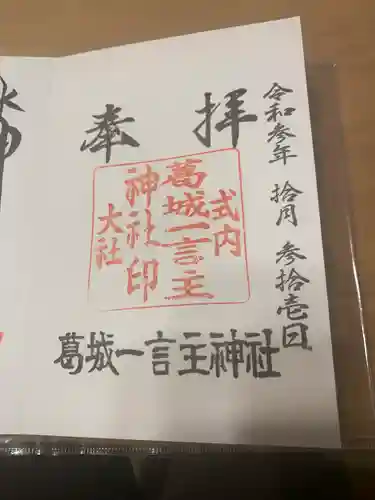 奉拝
令和参年 拾月 参拾壱日
式内
葛城一言主
神社印
大社
葛城一言主神社